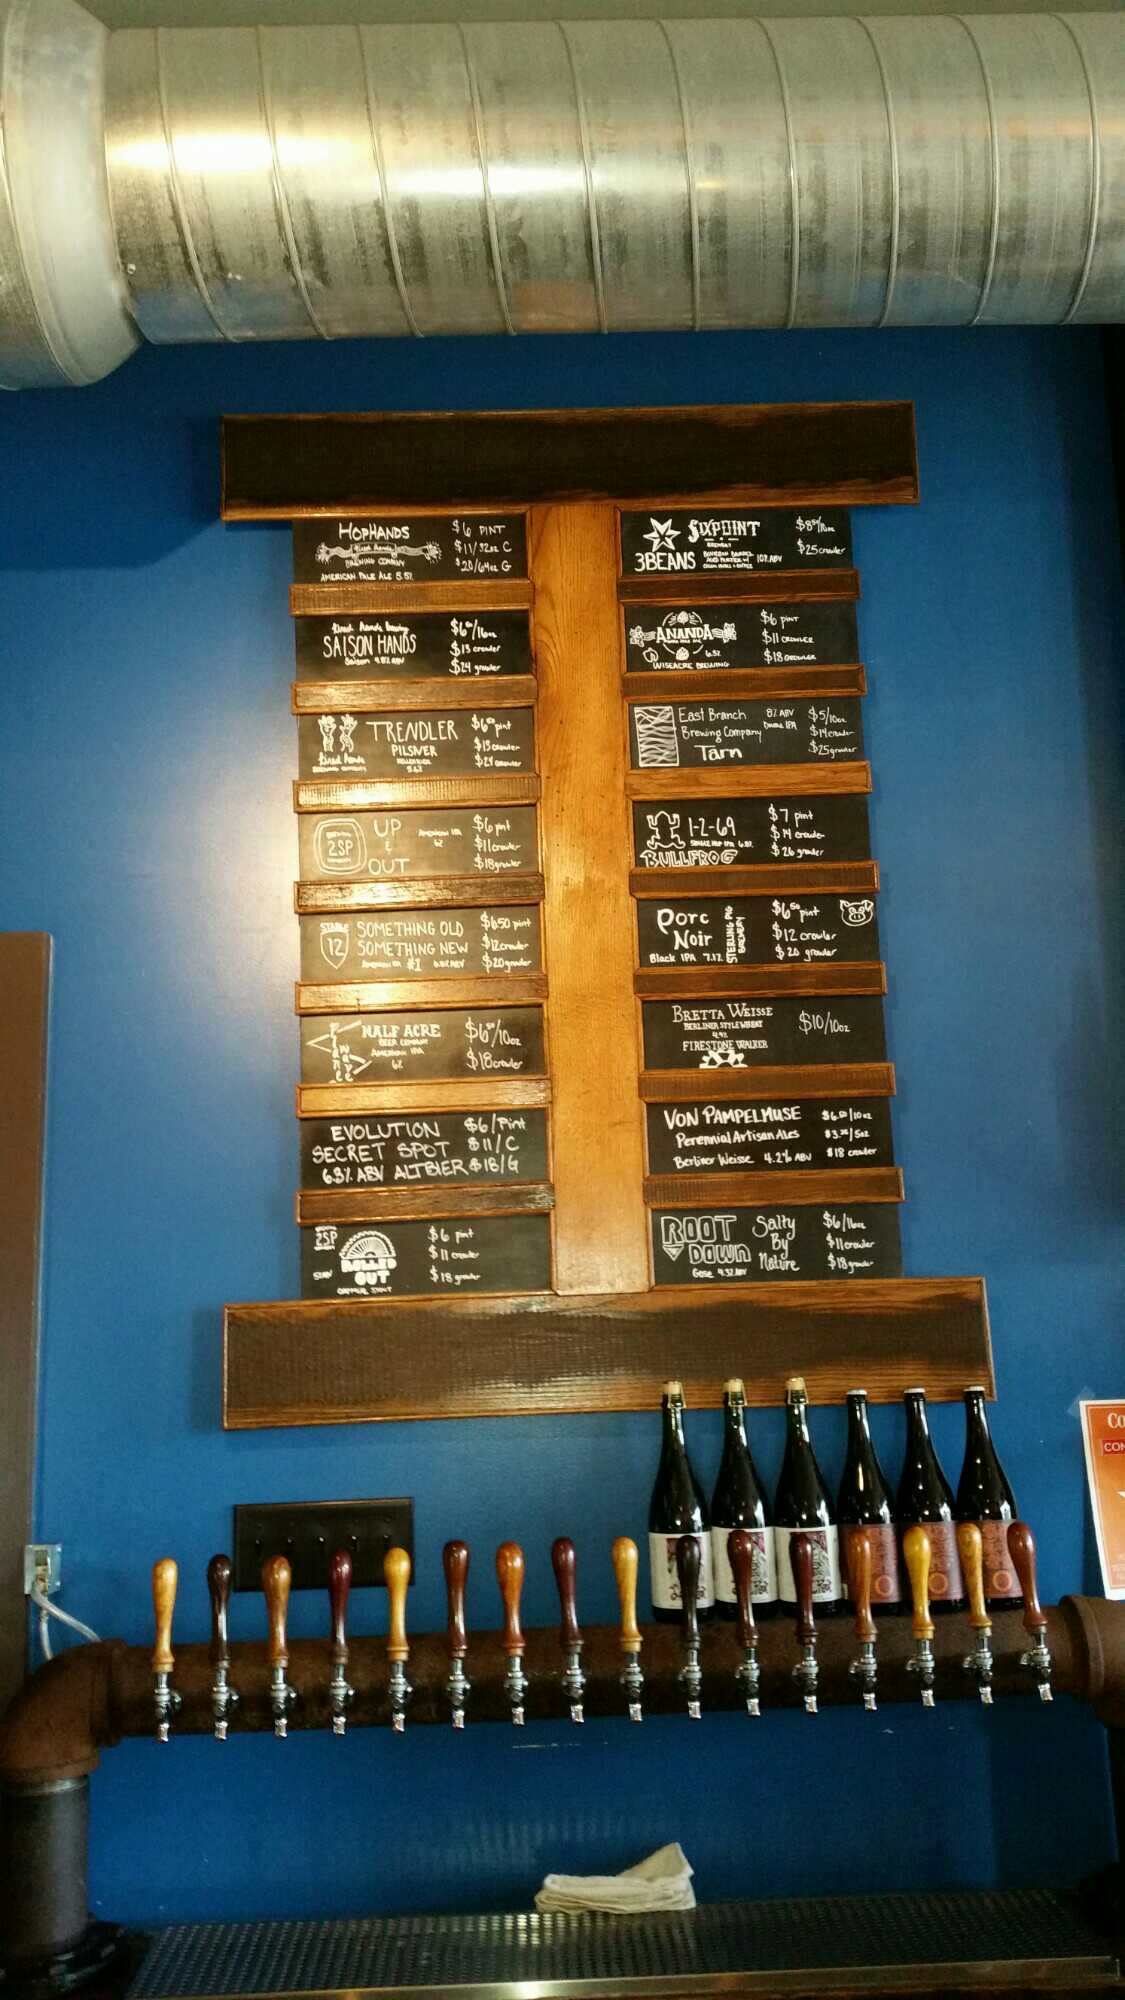 HOPHANDS
Tired Hands
BREWING COMPANY
AMERICAN PALE ALE 5.5%
$6 PINT
$11/32oz C
$20/64oz G
Tired Hands Brewing
SAISON HANDS
Saison 4.8% ABV
$6.00/16oz
$13 crowler
$24 growler
TRENDLER
PILSNER
Tired Hands
BREWING COMPANY
$6.50 pint
$13 crowler
$24 growler
BREWING
2SP
COMPANY
UP
&
OUT
AMERICAN IPA
62
$6 pint
$11 crowler
$18 growler
STABLE
12
SOMETHING OLD
SOMETHING NEW
AMERICAN IPA #1 6.8% ABV
$6.50 pint
$12 crowler
$20 growler
HALF ACRE
BEER COMPANY
AMERICAN IPA
6%
$6.50/10oz
$18 crowler
EVOLUTION
SECRET SPOT
6.3% ABV ALTBIER
$6/Pint
$11/C
$18/G
2SP
ROLLED
OUT
OATMEAL STOUT
$6 pint
$11 crowler
$18 growler
SIXPOINT
BREWERY
3BEANS
BOURBON BARREL
AGED PORTER W/
10% ABV
$8.50/10oz
$25 crowler
ANANDA
INDIA PALE ALE
6.3%
WISEACRE BREWING
$6 PINT
$11 CROWLER
$18 GROWLER
East Branch
Brewing Company
Tarn
8% ABV
Double IPA
$5/10oz
$14 crowler
$25 growler
1-2-69
SINGLE HOP IPA 6.9%
BULLFROG
$7 pint
$14 crowler
$26 growler
Porc
Noir
Black IPA 7.1%
STERLING PIG
BREWERY
$6.50 pint
$12 crowler
$20 growler
BRETTA WEISSE
BERLINER STYLE WHEAT
4.9%
FIRESTONE WALKER
$10/10oz
VON PAMPELMUSE
Perennial Artisan Ales
Berliner Weisse 4.2% ABV
$6.50/10oz
$3.25/5oz
$18 crowler
ROOT
DOWN
Gose 4.3% ABV
Salty
By
Nature
$6/16oz
$11 crowler
$18 growler